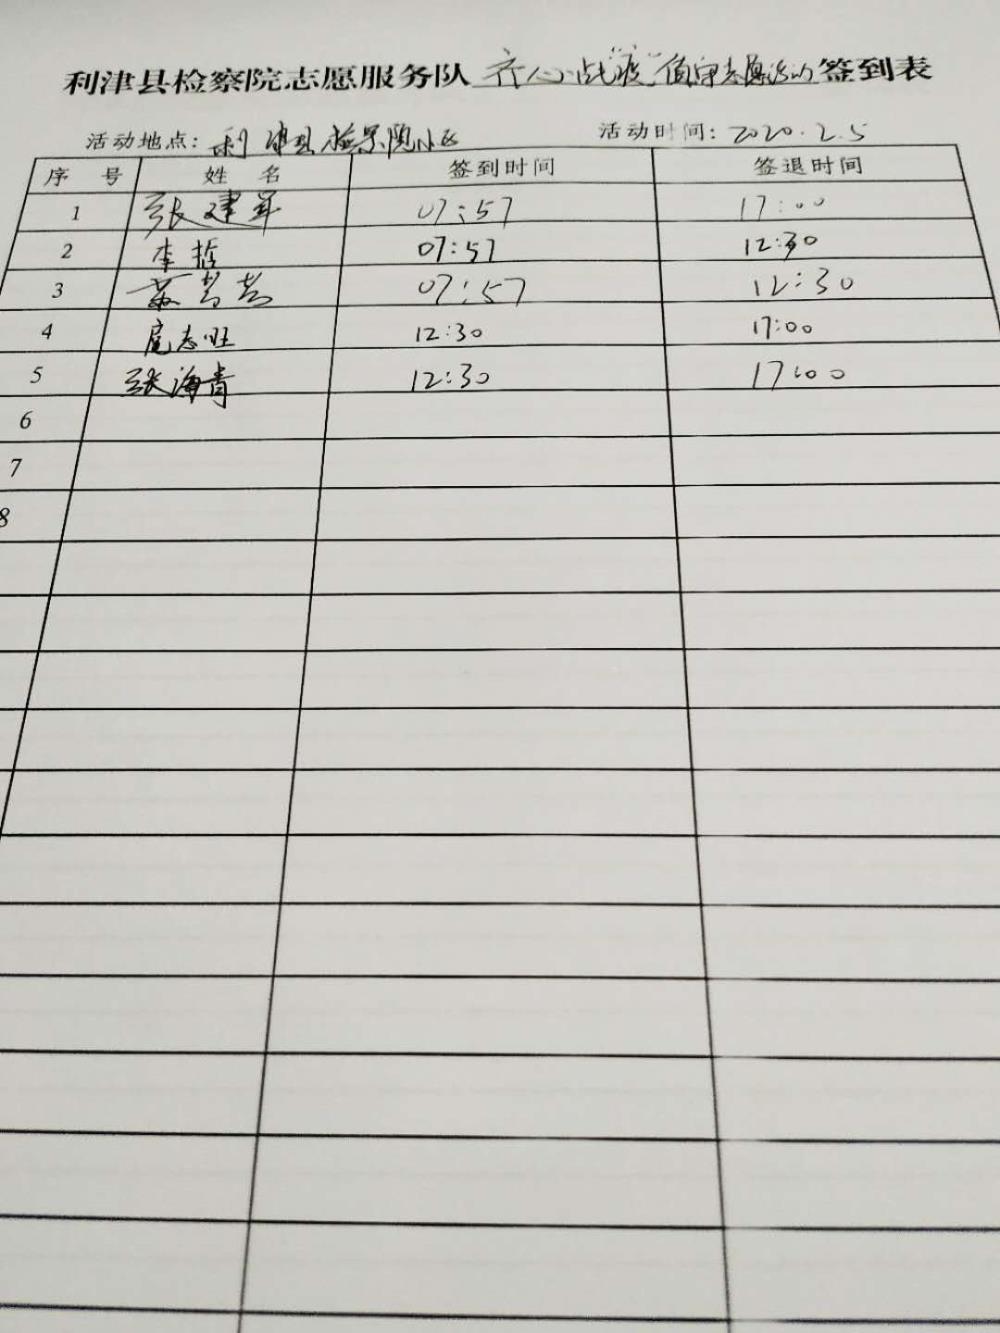 利津县检察院志愿服务队 齐心战"疫"值守志愿活动 签到表
活动地点: 利津县检察院小区 活动时间: 2020.2.5
序 号 姓 名 签到时间 签退时间
1 张建军 07:57 17:00
2 李哲 07:57 12:30
3 07:57 12:30
4 扈志旺 12:30 17:00
5 张海青 12:30 17:00
6
7
8